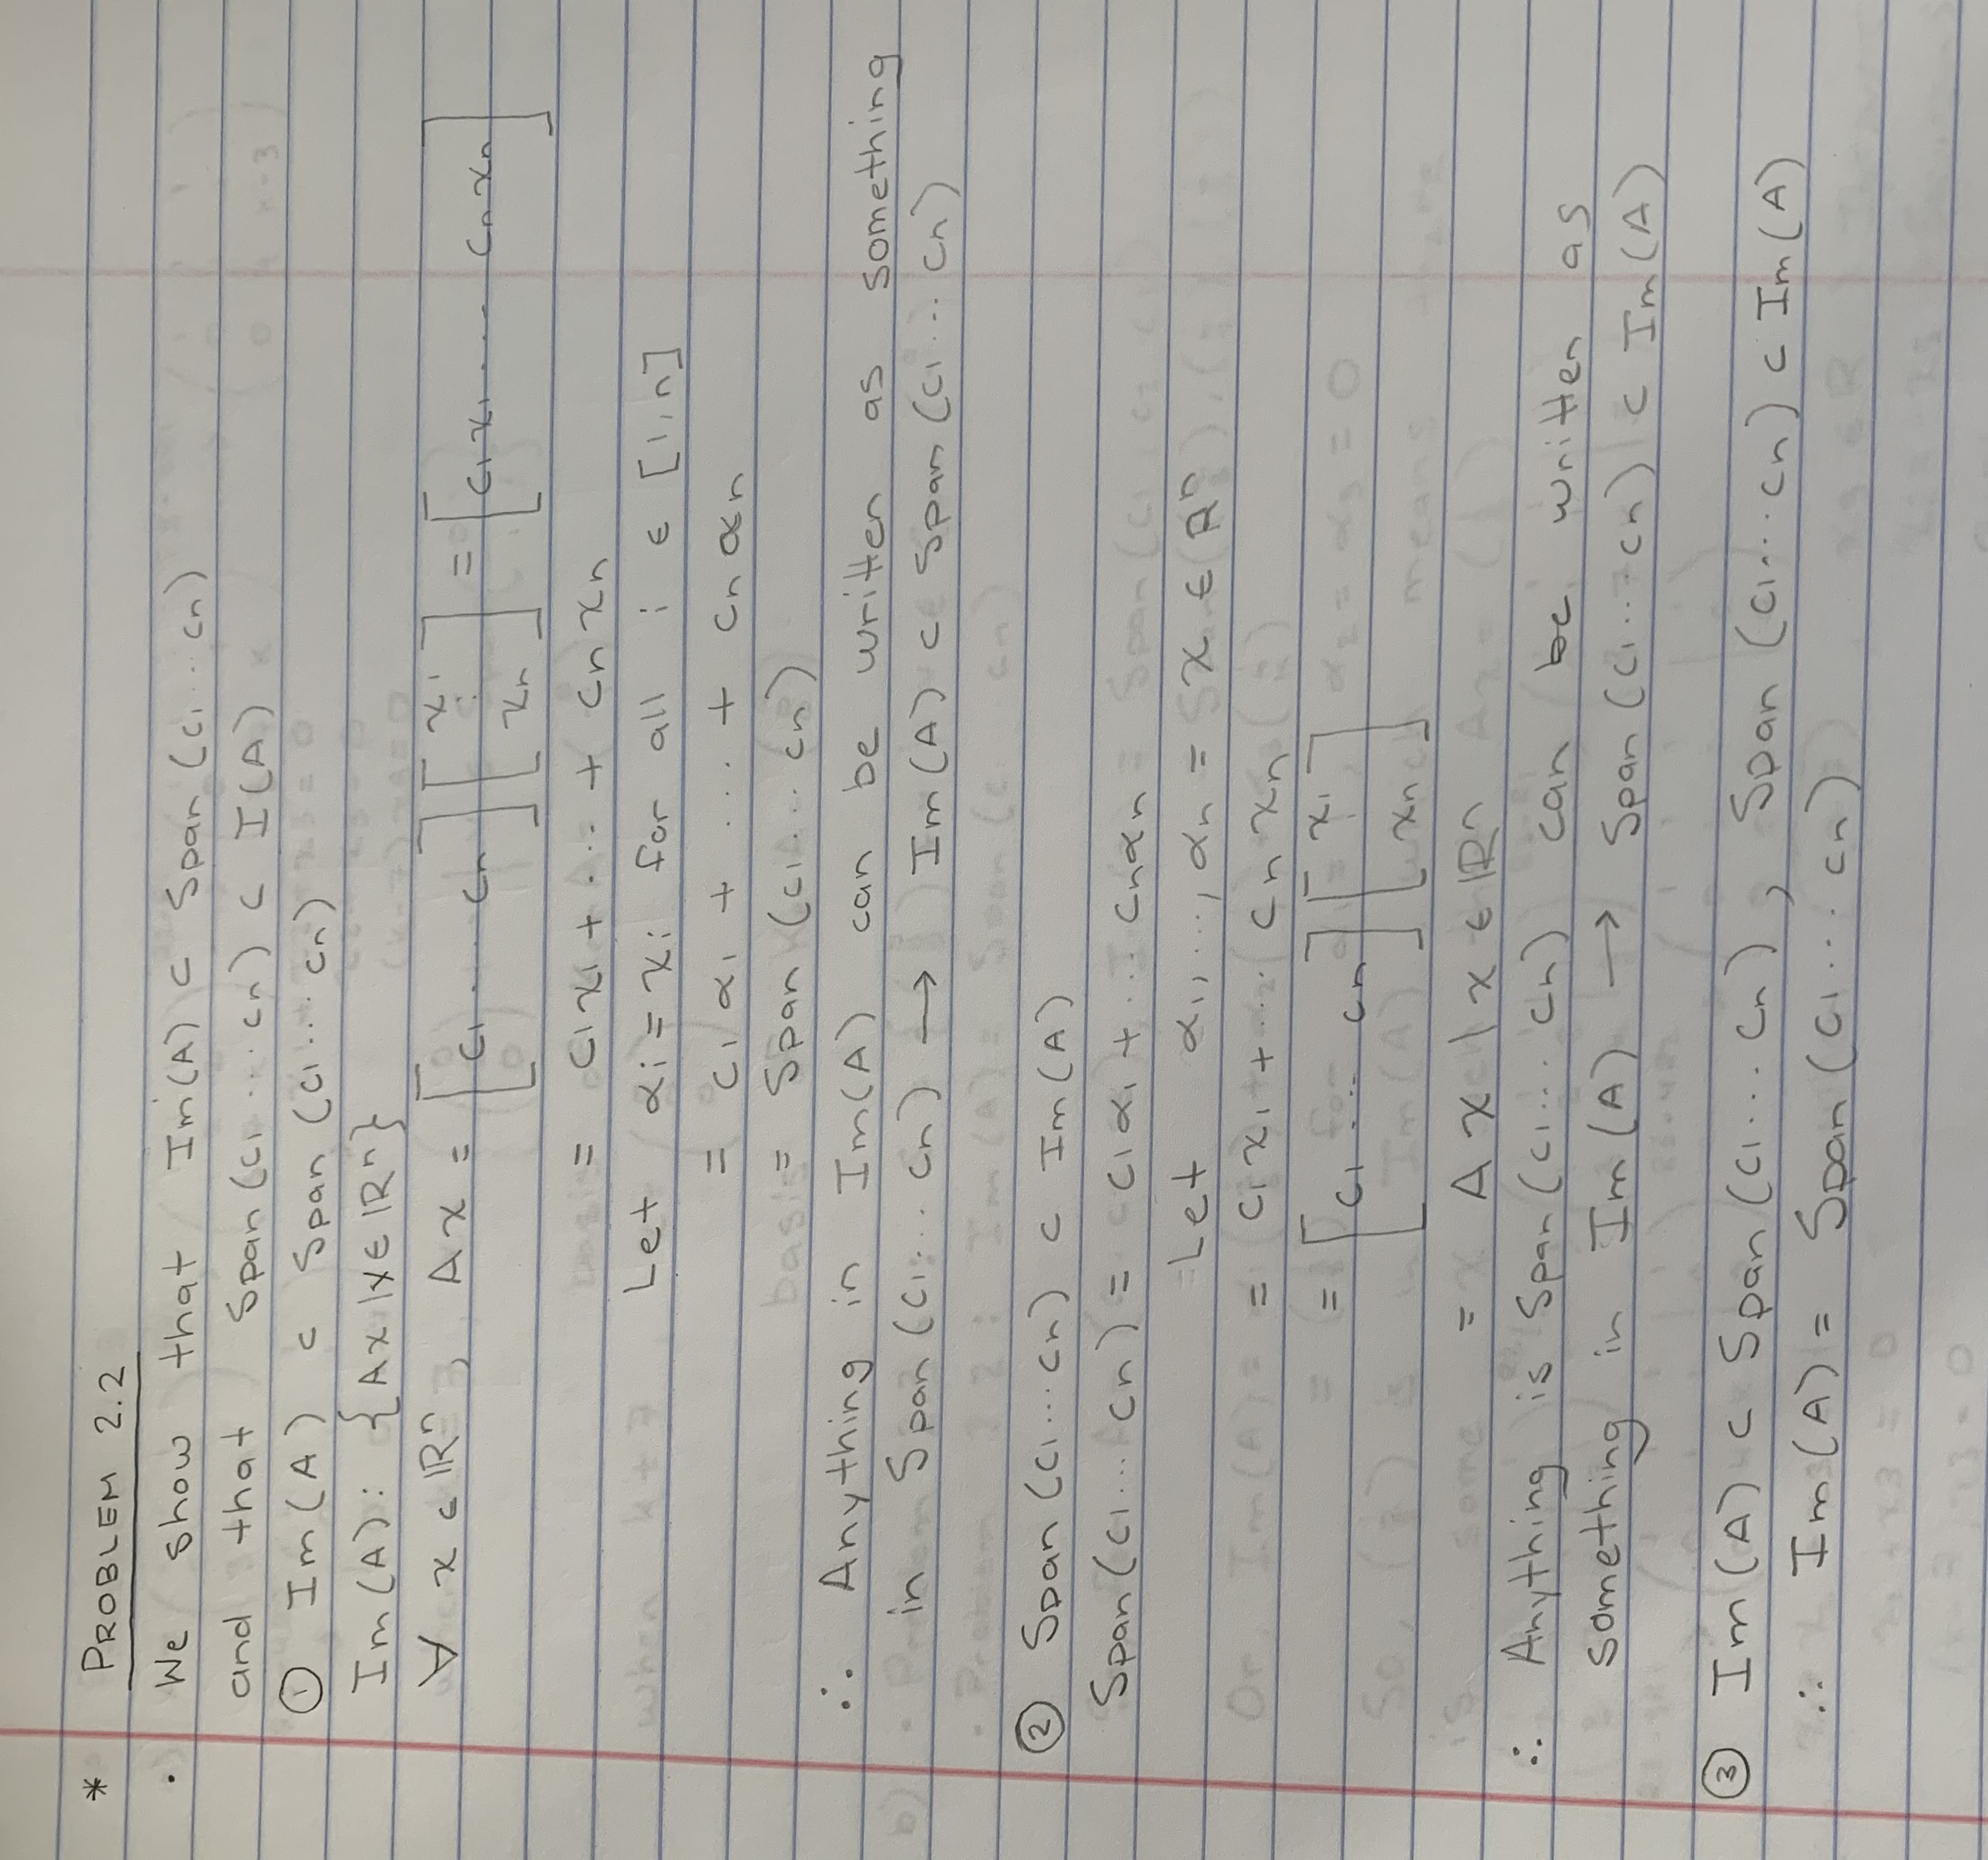 * PROBLEM 2.2
· We show that Im(A) ⊂ Span (c₁ ... cn)
and that Span (c₁ ... cn) ⊂ I(A)
① Im(A) ⊂ Span (c₁ ... cn)
Im(A): {Ax | x ∈ ℝⁿ}
∀ x ∈ ℝⁿ, Ax = [c₁ .... cn] [x₁ ⋮ xn] = [c₁x₁ .... cnxn]
= c₁x₁ + ... + cnxn
Let αi = xi for all i ∈ [1,n]
= c₁α₁ + ... + cnαn
= Span (c₁ ... cn)
∴ Anything in Im(A) can be written as something
in Span (c₁ ... cn) → Im(A) ⊂ Span (c₁ ... cn)
② Span (c₁ ... cn) ⊂ Im(A)
Span (c₁ ... cn) = c₁α₁ + ... cnαn
Let α₁, ..., αn = x ∈ ℝⁿ
= c₁x₁ + ... cnxn
= [c₁ ... cn] [x₁ ⋮ xn]
= Ax | x ∈ ℝⁿ
∴ Anything is Span (c₁ ... cn) can be written as
something in Im(A) → Span (c₁ ... cn) ⊂ Im(A)
③ Im(A) ⊂ Span (c₁ ... cn), Span (c₁ ... cn) ⊂ Im(A)
∴ Im(A) = Span (c₁ ... cn)